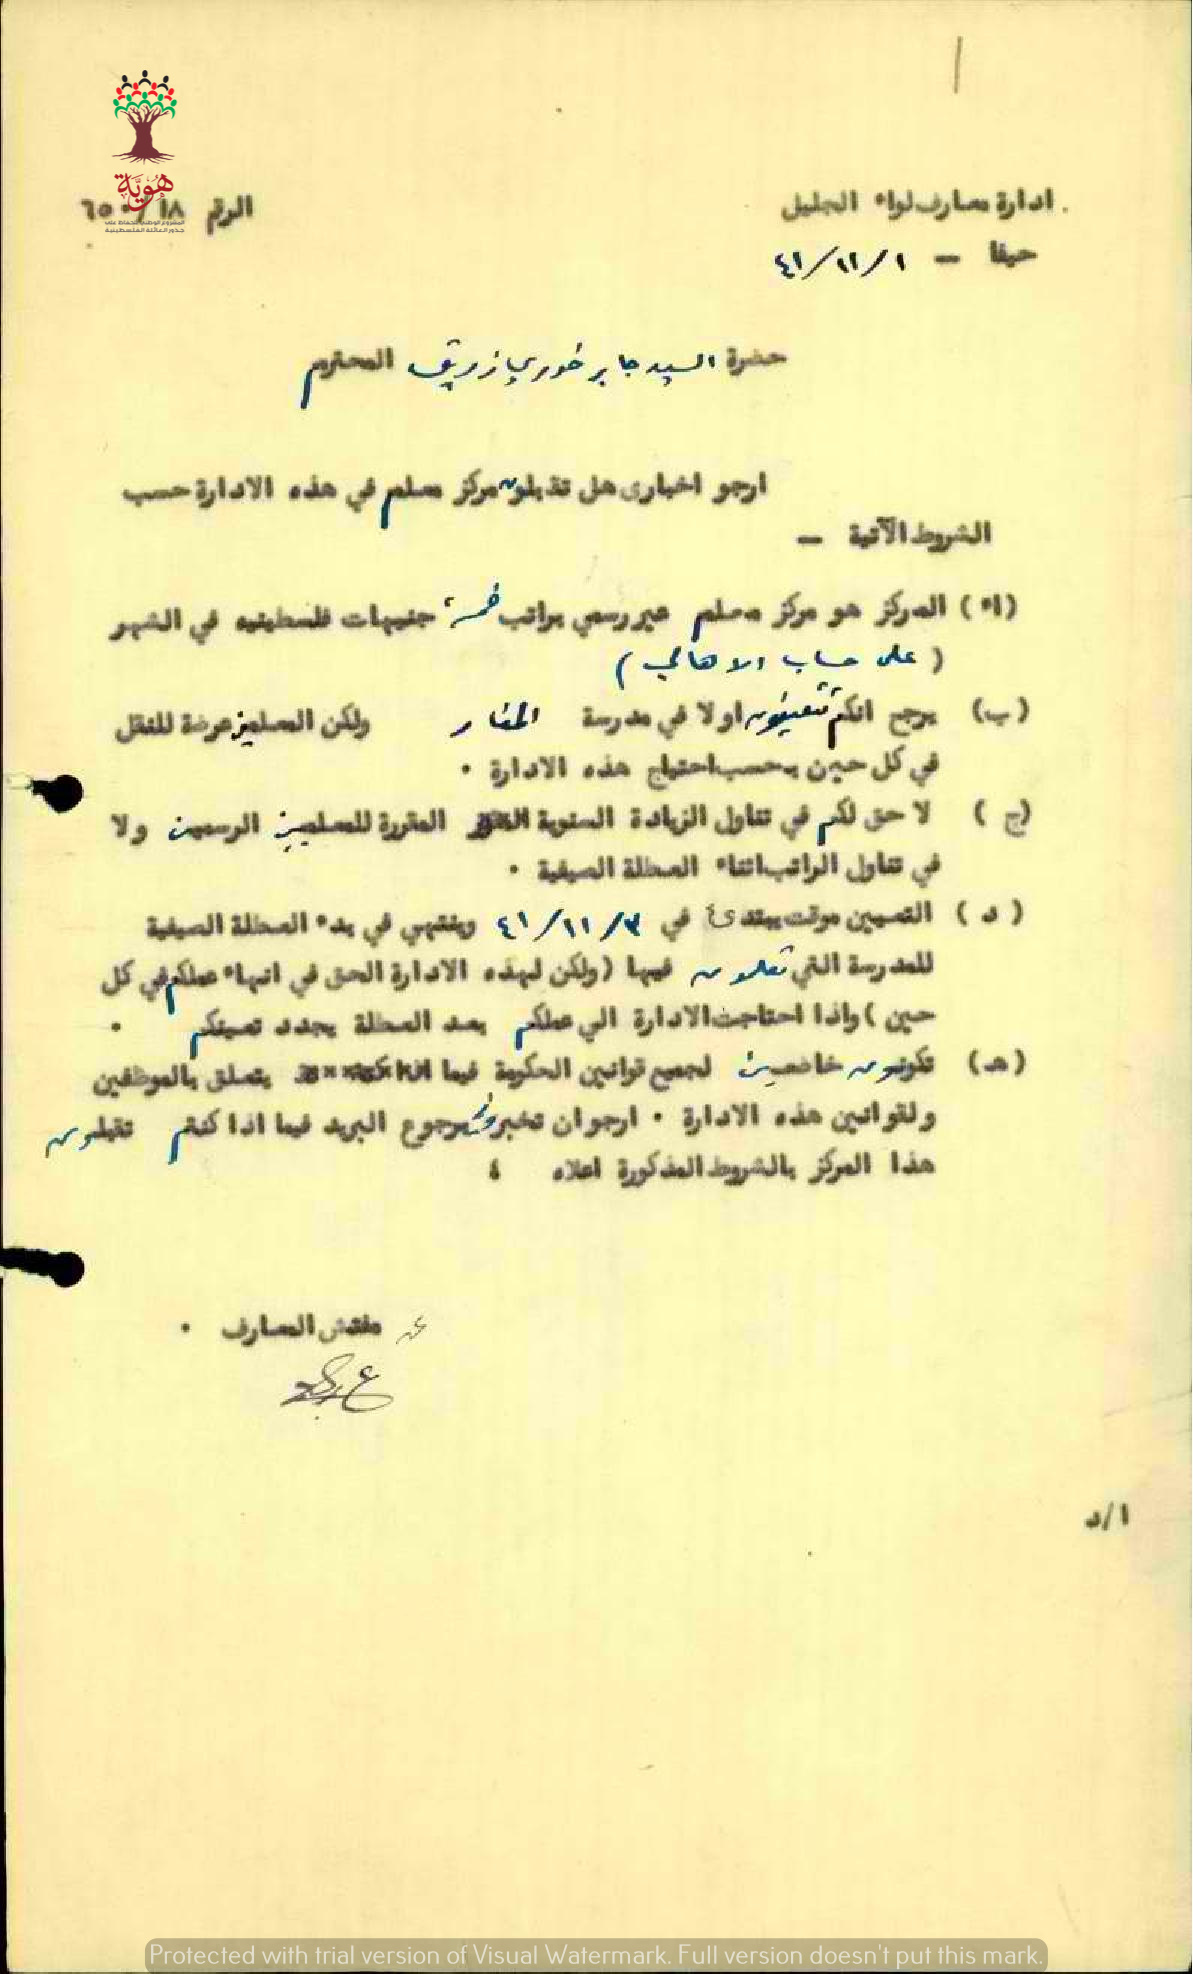 ادارة معارف لواء الجليل
الرقم ١٨ / ٦٥٠
هُوِيَّة
المشروع الوطني للحفاظ على
جذور العائلة الفلسطينية
حيفا – ١/١١/٤١
حضرة السيد جابر خوري زريق المحترم
ارجو اخباري هل تقبلون مركز معلم في هذه الادارة حسب
الشروط الآتية –
(ا) المركز هو مركز معلم غير رسمي براتب خمسة جنيهات فلسطينيه في الشهر
( على حساب الاهالي )
(ب) يرجح انكم تتعينون اولا في مدرسة المغار ولكن المعلمين عرضة للنقل
في كل حين بحسب احتياج هذه الادارة ٠
(ج) لا حق لكم في تناول الزيادة السنوية المقررة للمعلمين الرسميين ولا
في تناول الراتب اثناء العطلة الصيفية ٠
( د ) التعيين موقت يبتدئ في ٣/١١/٤١ وينتهي في بدء العطلة الصيفية
للمدرسة التي تعلمون فيها (ولكن لهذه الادارة الحق في انهاء عملكم في كل
حين ) واذا احتاجت الادارة الي عملكم بعد العطلة يجدد تعيينكم ٠
(هـ) تكونون خاضعين لجميع قوانين الحكومة فيما يتعلق بالموظفين
ولقوانين هذه الادارة ٠ ارجو ان تخبروني برجوع البريد فيما اذا كنتم تقبلون
هذا المركز بالشروط المذكورة اعلاه ،
عن مفتش المعارف ٠
ا/د
Protected with trial version of Visual Watermark. Full version doesn't put this mark.